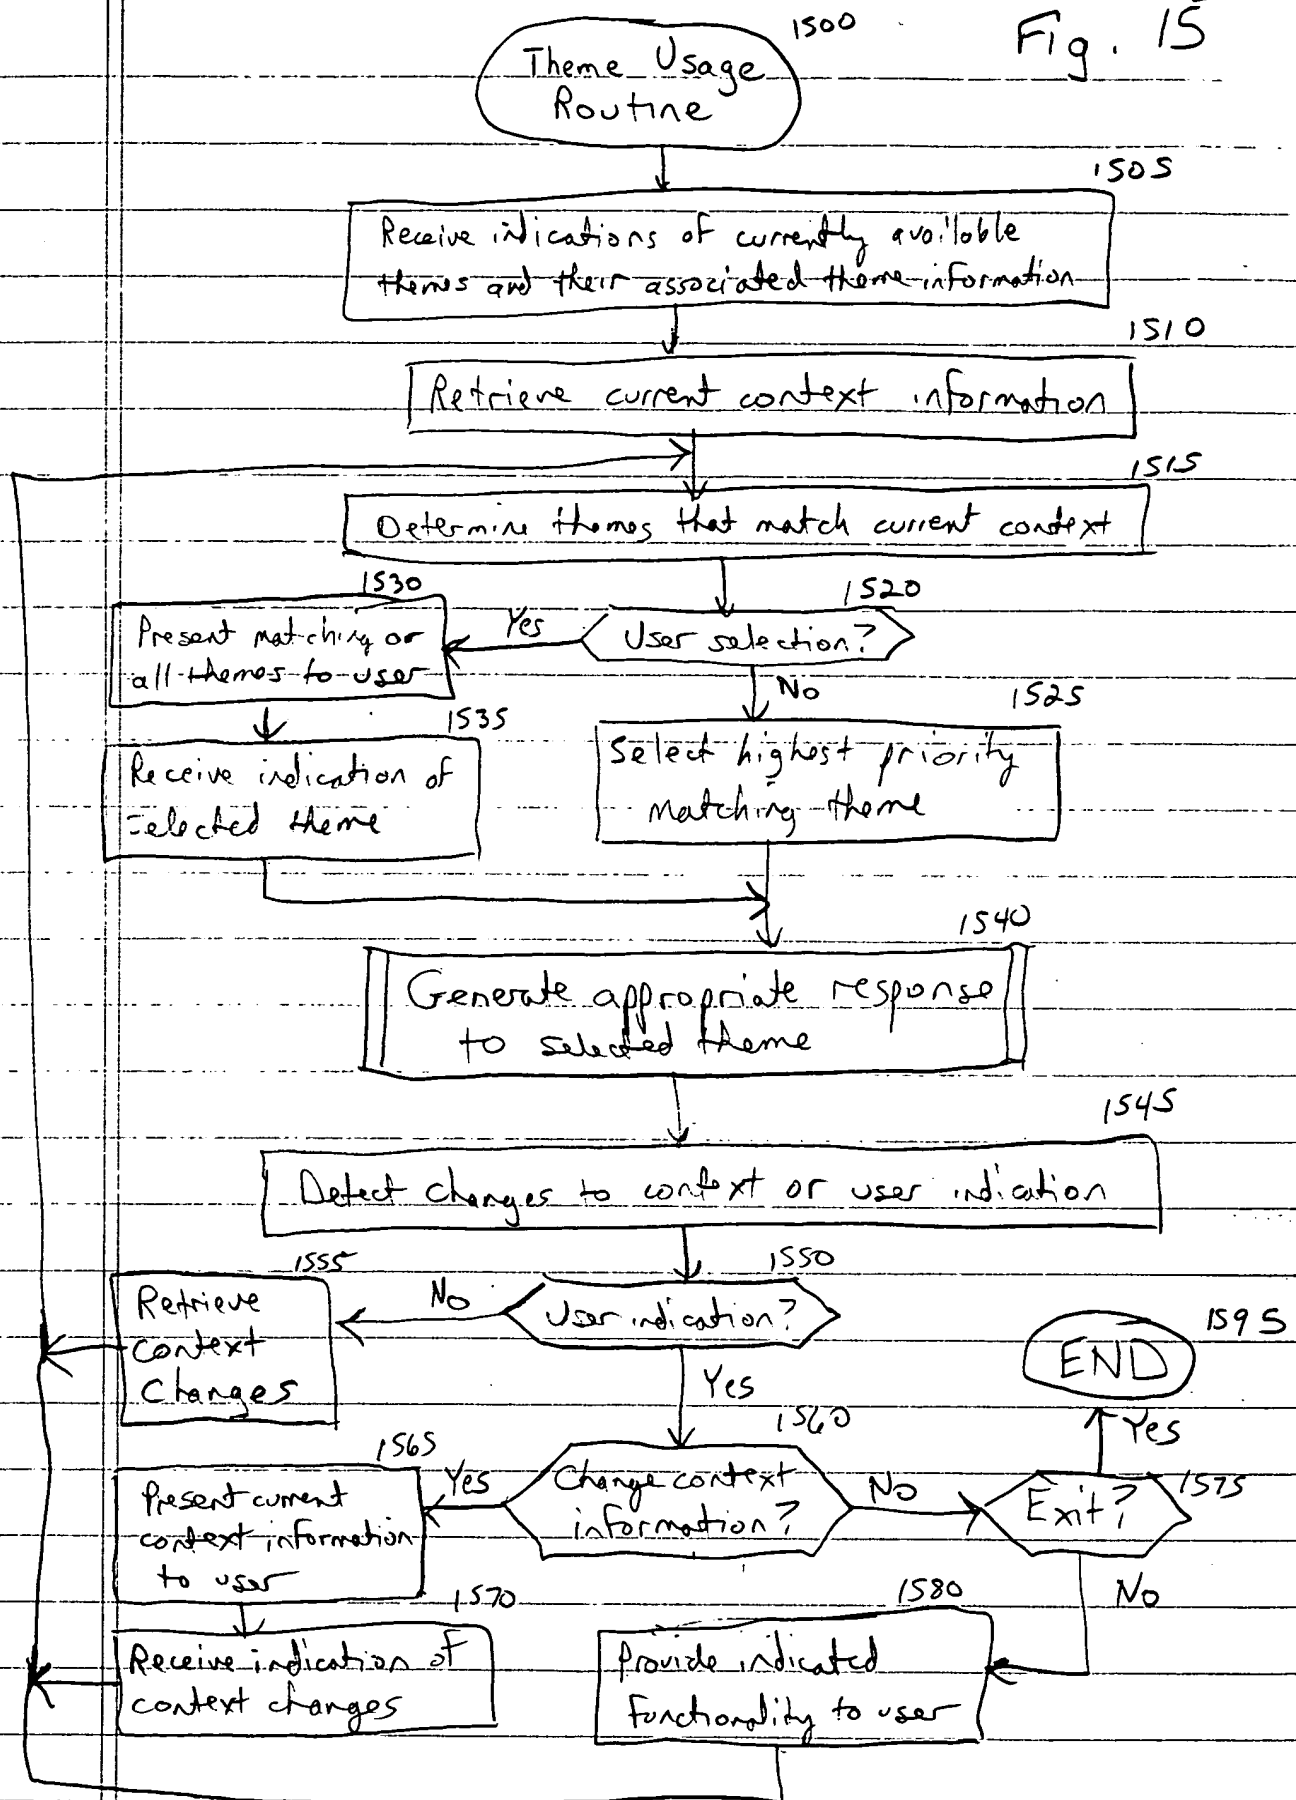 Fig. 15
1500
Theme Usage
Routine
1505
Receive indications of currently available
themes and their associated theme information
1510
Retrieve current context information
1515
Determine themes that match current context
1520
User selection?
Yes
No
1530
Present matching or
all themes to user
1535
Receive indication of
selected theme
1525
Select highest priority
matching theme
1540
Generate appropriate response
to selected theme
1545
Detect changes to context or user indication
1550
User indication?
No
Yes
1555
Retrieve
context
Changes
1560
Change context
information?
Yes
No
1565
Present current
context information
to user
1570
Receive indication of
context changes
1575
Exit?
Yes
No
1595
END
1580
Provide indicated
functionality to user